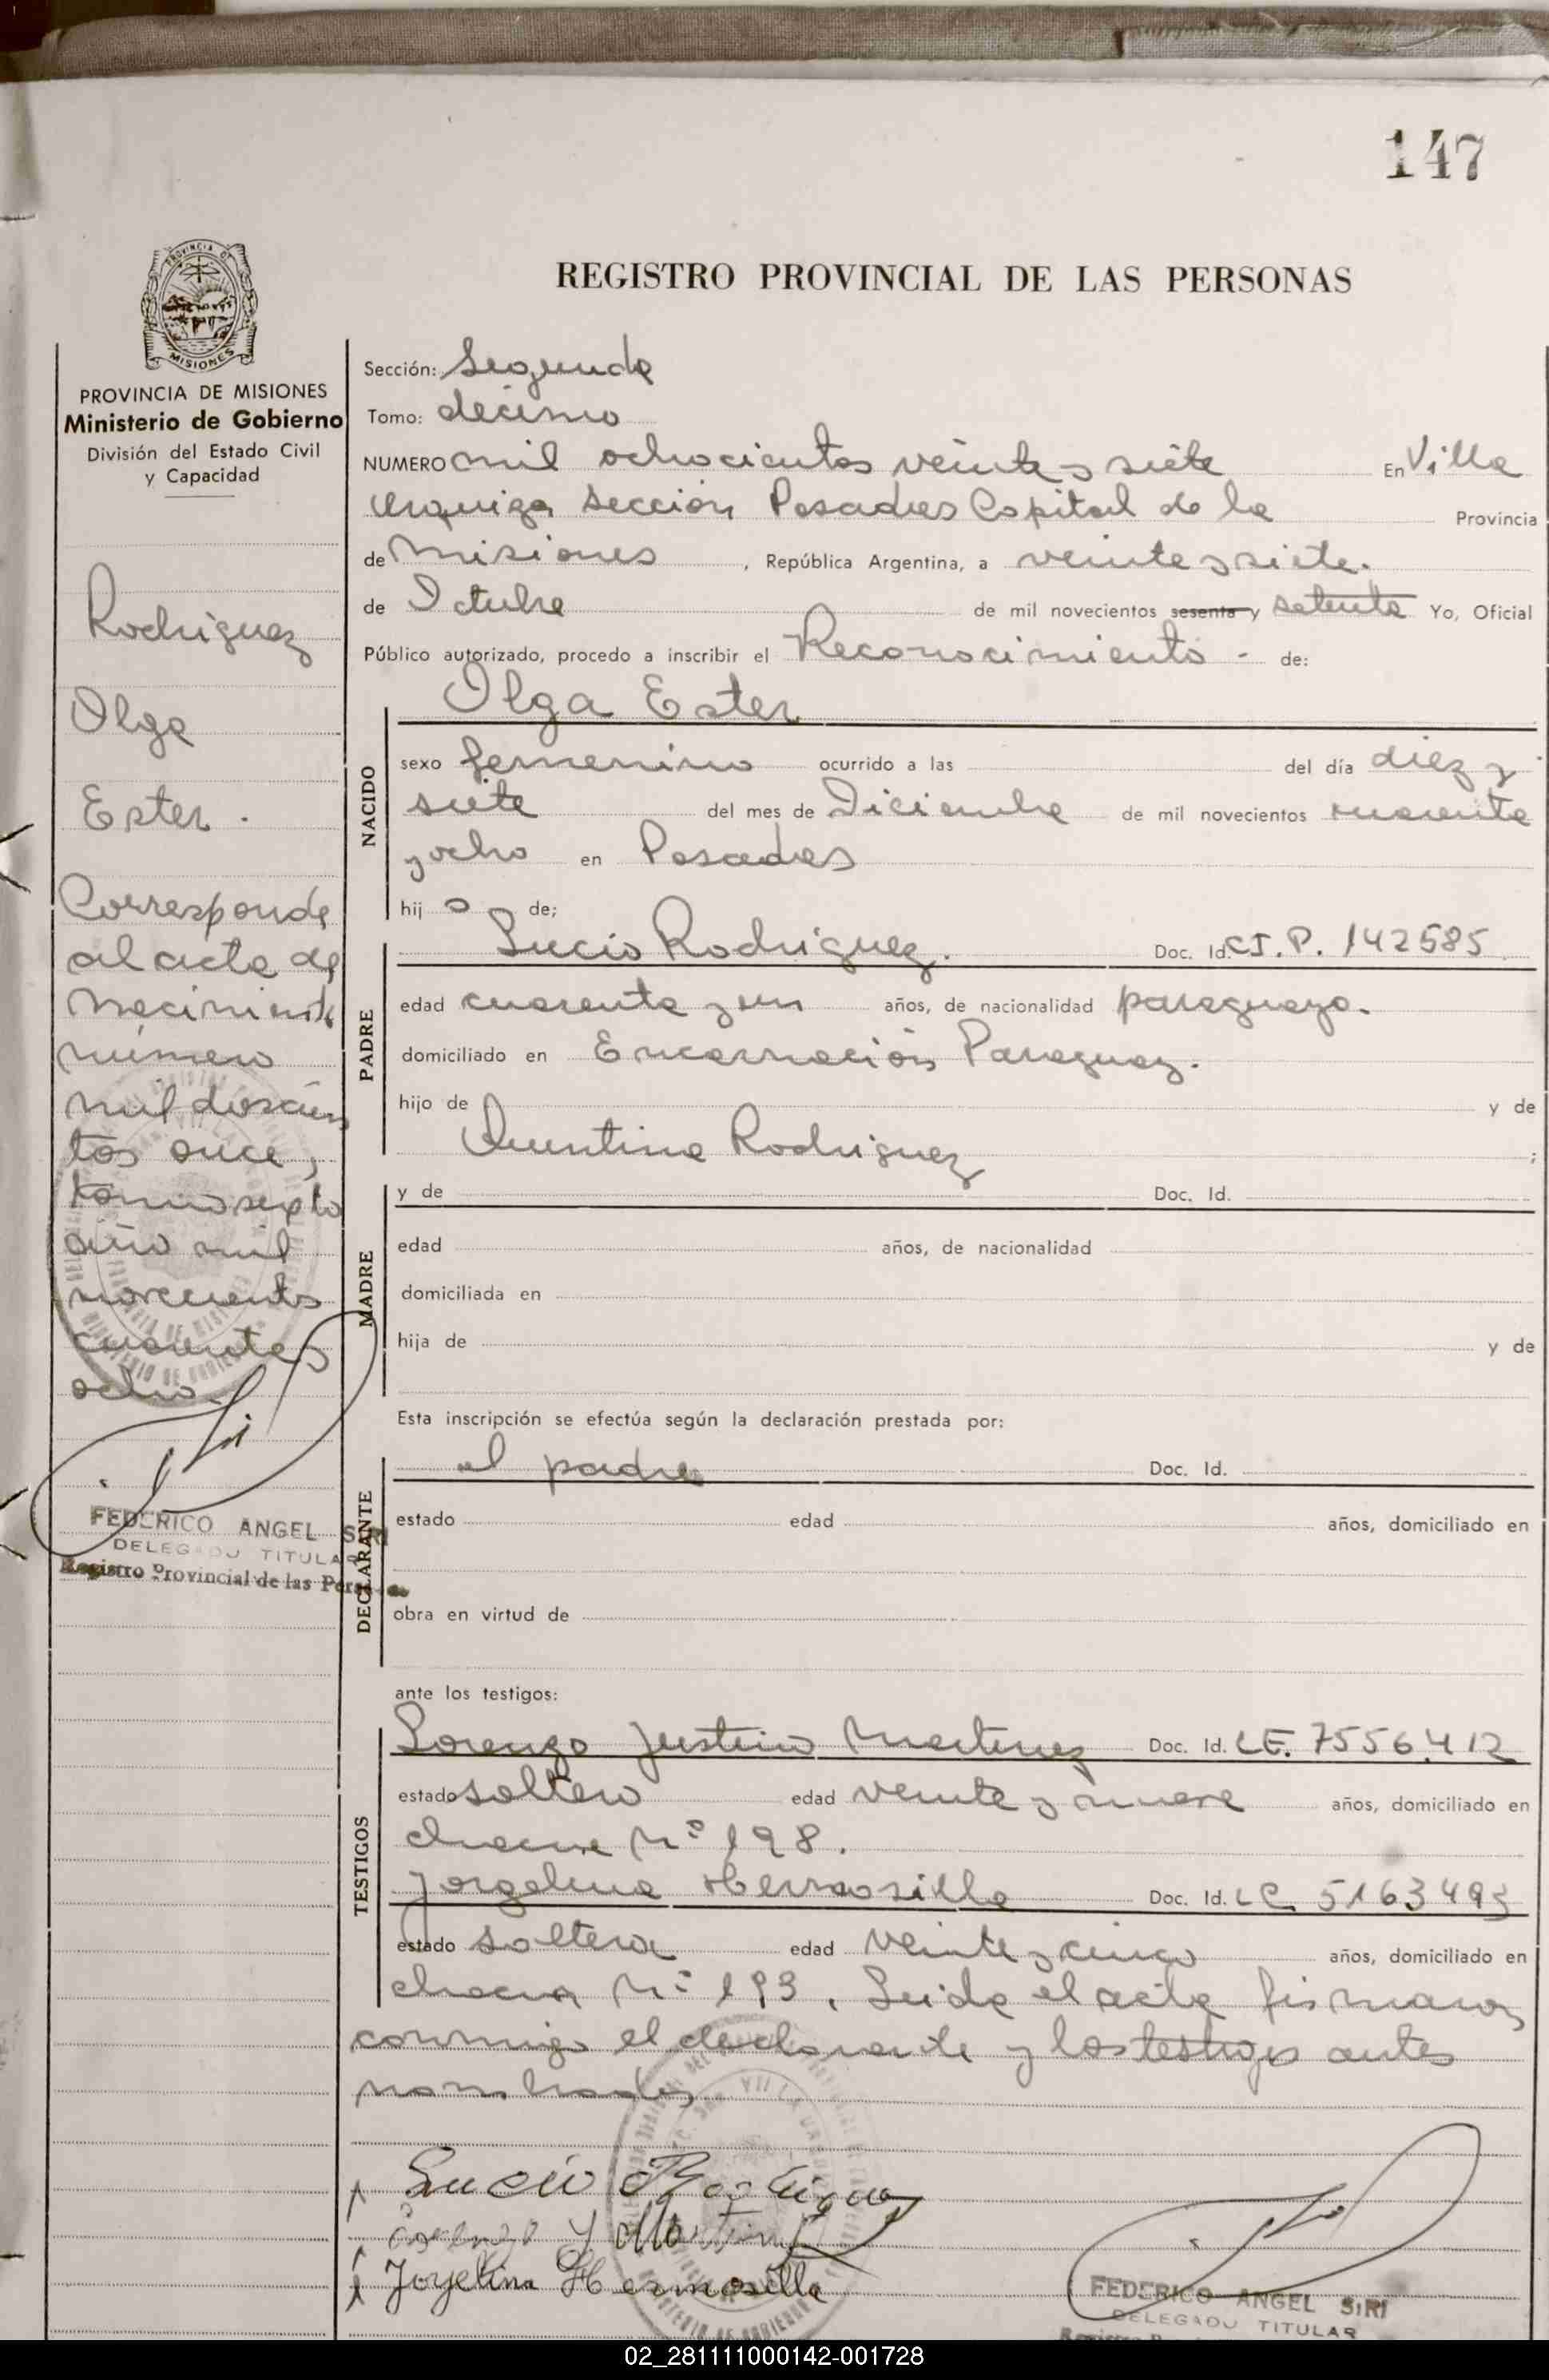 147
PROVINCIA DE
MISIONES
REGISTRO PROVINCIAL DE LAS PERSONAS
PROVINCIA DE MISIONES
Ministerio de Gobierno
División del Estado Civil
y Capacidad
Rodriguez
Olga
Ester.
Corresponde
al acta de
nacimiento
número
mil doscien
tos once,
tomo sexto
año mil
novecientos
cuarenta y
ocho
FEDERICO ANGEL SIRI
DELEGADO TITULAR
Registro Provincial de las Personas
Sección: Segunda
Tomo: décimo
NUMERO mil ochocientos veinte y siete En Villa
Urquiza Sección Posadas Capital de la Provincia
de Misiones , República Argentina, a veinte y siete.
de Octubre de mil novecientos sesenta y setenta Yo, Oficial
Público autorizado, procedo a inscribir el Reconocimiento - de:
Olga Ester
NACIDO
sexo femenino ocurrido a las del día diez y
siete del mes de Diciembre de mil novecientos cuarenta
y ocho en Posadas
hij a de;
PADRE
Lucio Rodriguez. Doc. Id. CI.P. 142585
edad cuarenta y un años, de nacionalidad paraguaya.
domiciliado en Encarnación Paraguay.
hijo de y de
Quintina Rodriguez ;
MADRE
y de Doc. Id.
edad años, de nacionalidad
domiciliada en
hija de y de
Esta inscripción se efectúa según la declaración prestada por:
DECLARANTE
el padre Doc. Id.
estado edad años, domiciliado en
obra en virtud de
ante los testigos:
TESTIGOS
Lorenzo Justino Martinez Doc. Id. LE. 7556.412
estado soltero edad veinte y nueve años, domiciliado en
chacra Nº 198.
Jorgelina Hermosilla Doc. Id. LC 5163493
estado soltera edad veinte y cinco años, domiciliado en
chacra Nº 193. Leida el acta firmaron
conmigo el declarante y los testigos antes
nombrados
Lucio Rodriguez
Lorenzo J Martinez
Jorgelina Hermosilla
FEDERICO ANGEL SIRI
DELEGADO TITULAR
02_281111000142-001728